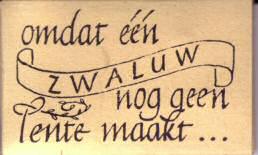 omdat één
ZWALUW
nog geen
lente maakt ...